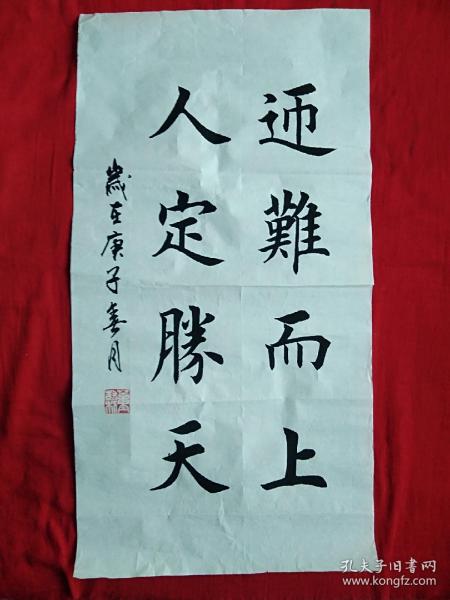 迊難而上
人定勝天
歲在庚子春月
孔夫子旧书网
www.kongfz.com